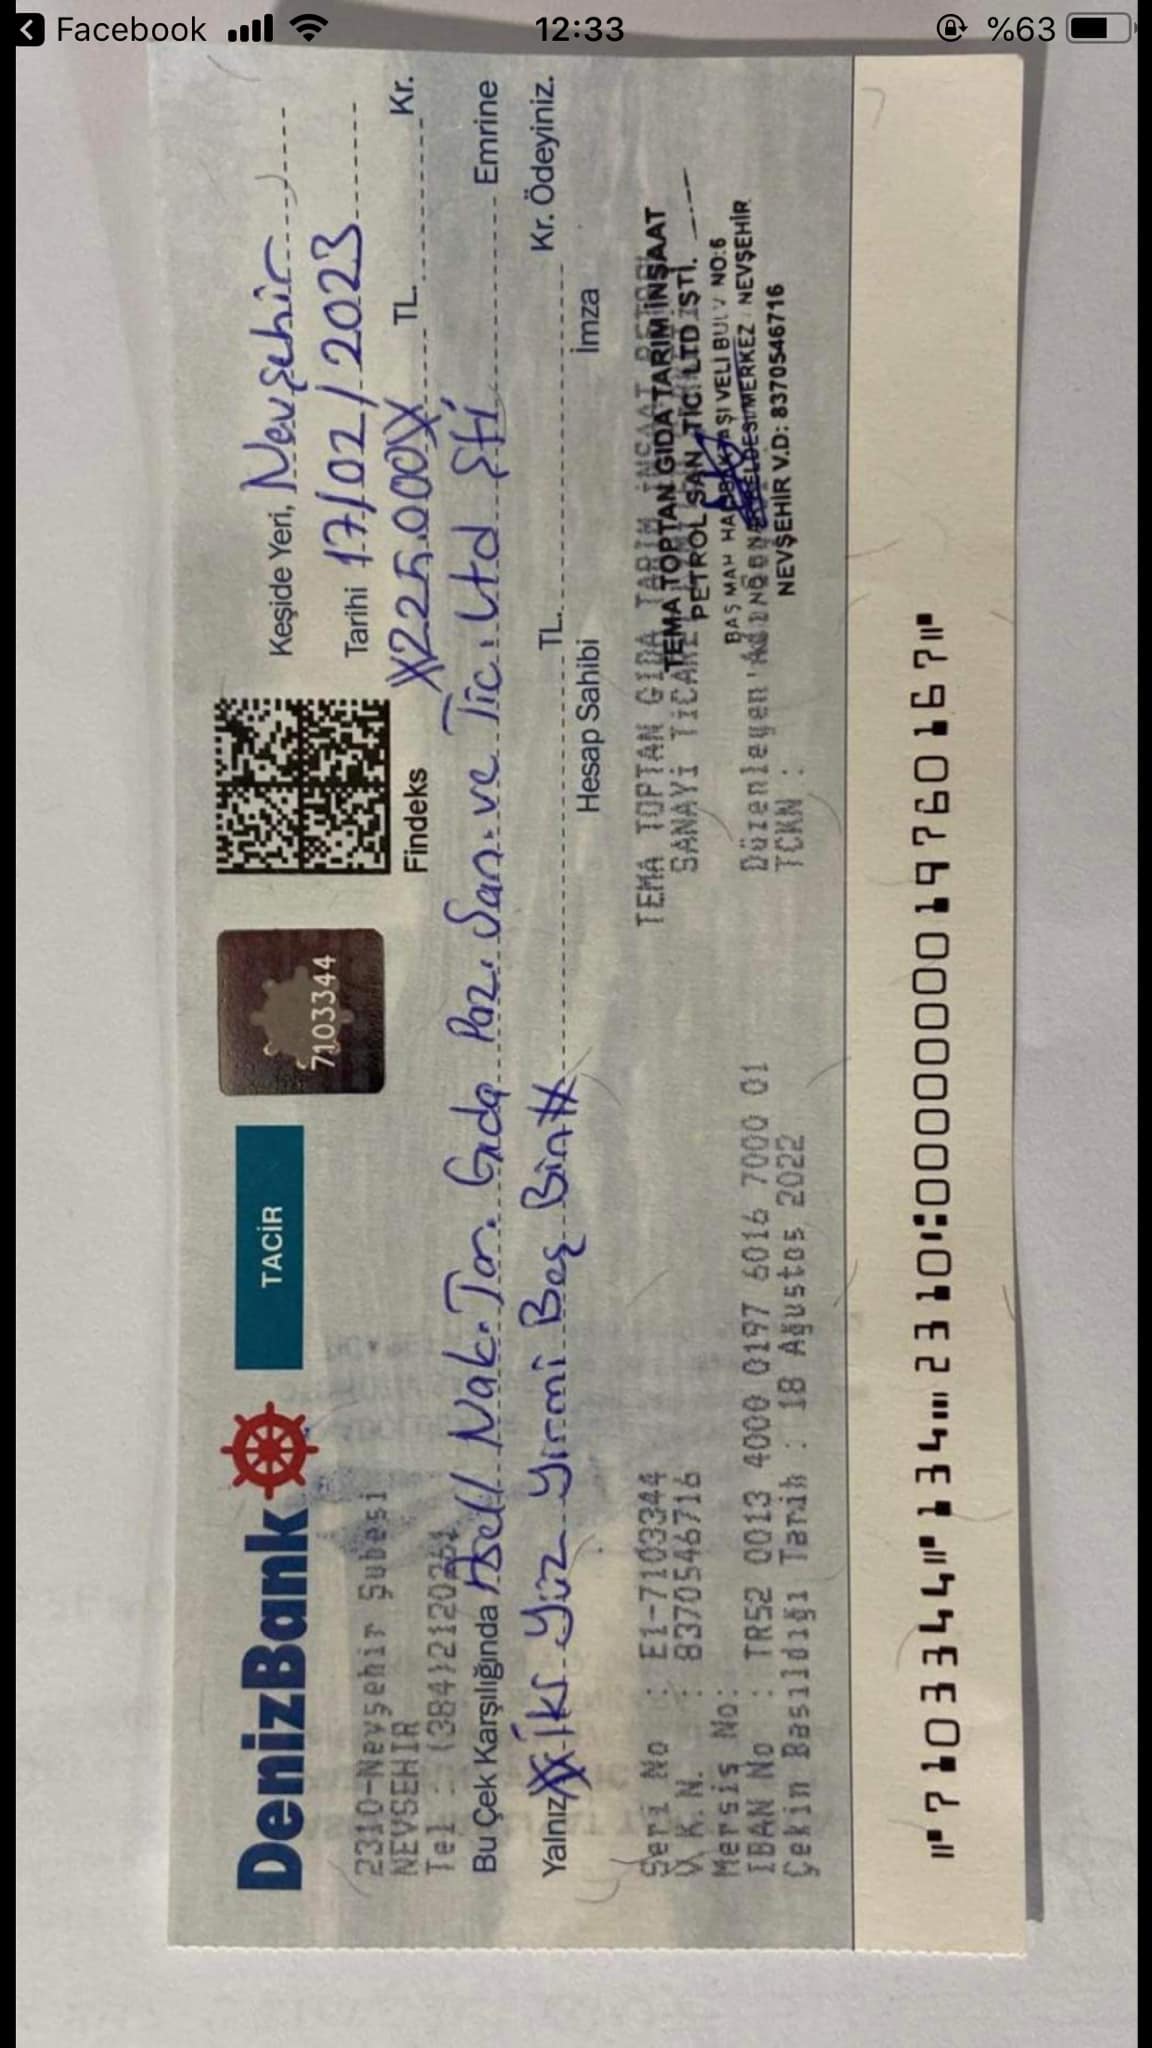 Facebook
12:33
%63
DenizBank
TACİR
7103344
Findeks
Keşide Yeri, Nevşehir
Tarihi 17/02/2023
#225.000# TL. Kr.
2310-Nevşehir Şubesi
NEVŞEHİR
Tel : (384)2120261
Bu Çek Karşılığında Asell Nak. Tar. Gıda Paz. San. ve Tic. Ltd Şti Emrine
Yalnız # İki Yüz Yirmi Beş Bin # TL. Kr. Ödeyiniz.
Hesap Sahibi İmza
Seri No : E1-7103344
V.K.N. : 8370546716
Mersis No:
IBAN No : TR52 0013 4000 0197 6016 7000 01
Çekin Basıldığı Tarih : 18 Ağustos 2022
TEMA TOPTAN GIDA TARIM İNŞAAT
SANAYİ TİCARET
Düzenleyen'
TCKN :
TEMA TOPTAN GIDA TARIM İNŞAAT
PETROL SAN. TİC LTD ŞTİ.
VELİ BULV NO:6
MERKEZ / NEVŞEHİR
NEVŞEHİR V.D: 8370546716
⑈7103344⑈134⑉2310⑆0000000019760167⑈